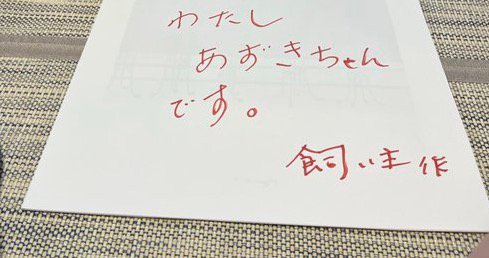 わたし
あずきちゃん
です。
飼い主作